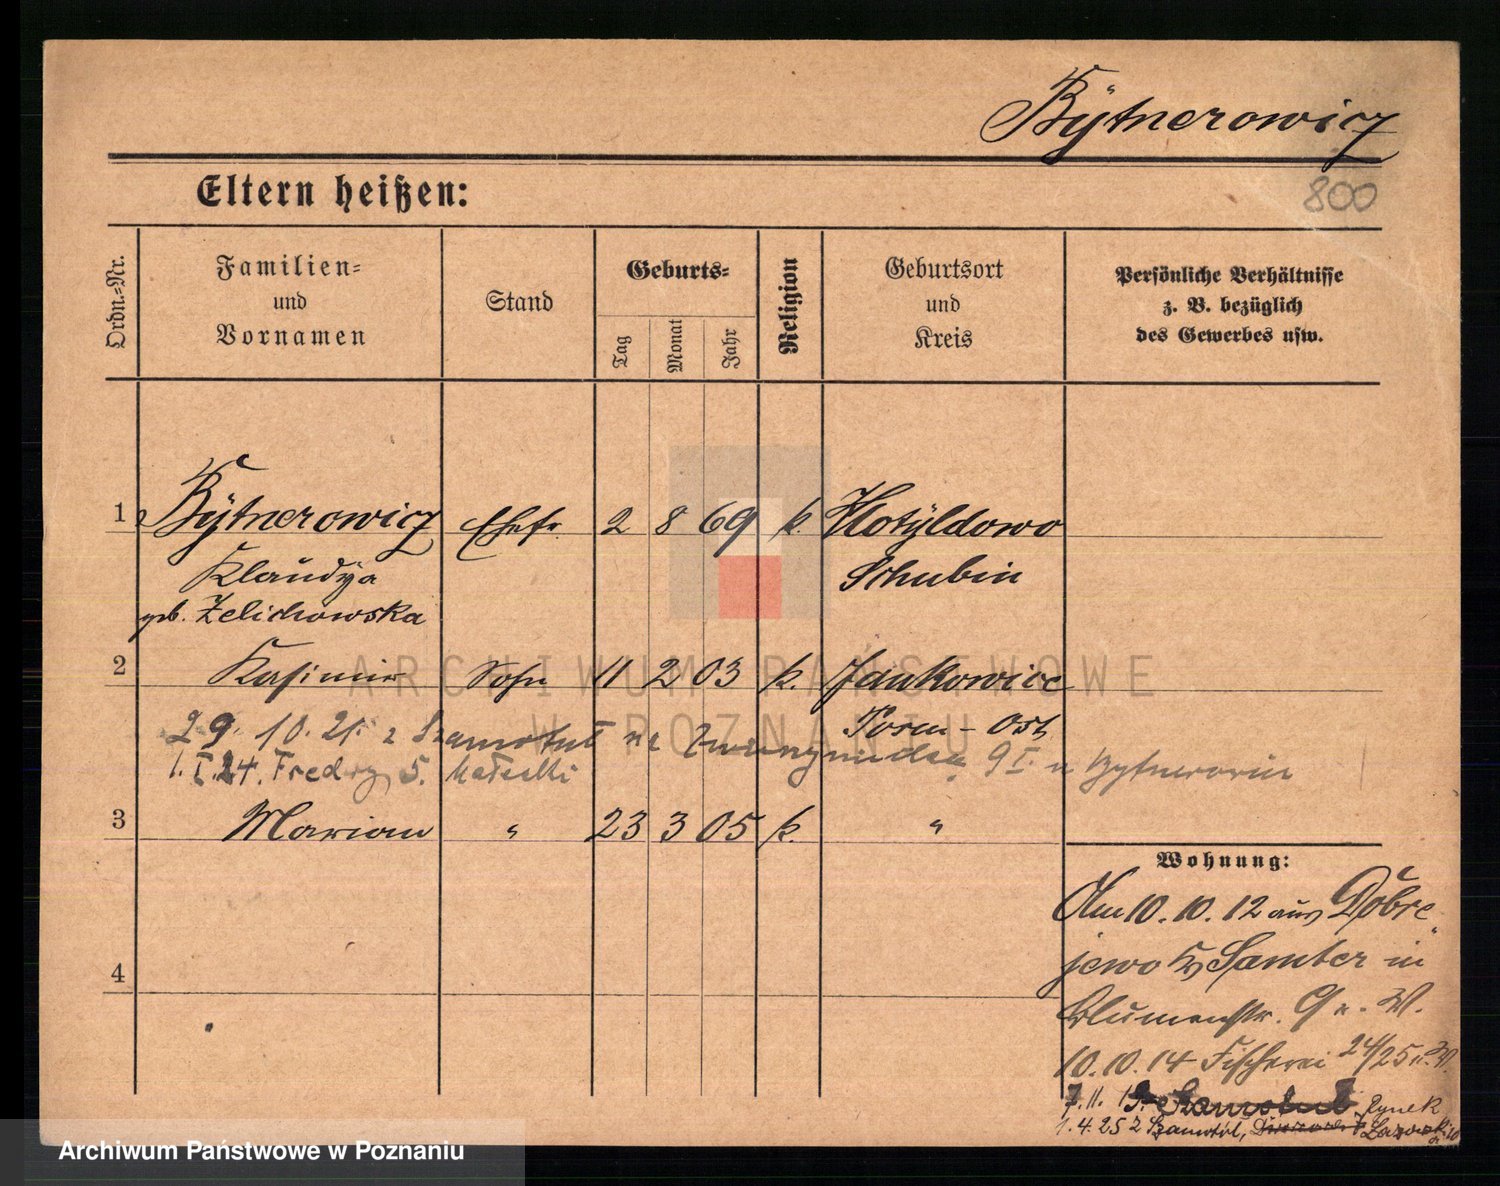 Bÿtnerowicz
800
Eltern heißen:
Ordn.-Nr.
Familien-
und
Vornamen
Stand
Geburts-
Tag
Monat
Jahr
Religion
Geburtsort
und
Kreis
Persönliche Verhältnisse
z. B. bezüglich
des Gewerbes usw.
1 Bÿtnerowicz Ehefr. 2 8 69 k. Hotÿldowo
Klaudÿa Schubin
geb. Zelichowska
2 Kasimir Sohn 11 2 03 k. Jankowice
Posen-Ost
29. 10. 21. z Szamotuł na 9 I. u Bytnerowicz
1. I. 24. Fredry 5. Małecki
3 Marian " 23 3 05 k. "
4
Wohnung:
Am 10. 10. 12 aus Dobre-
jewo Samter in
Blumenstr. 9 b. W.
10. 10. 14 Fischerei 24/25 b. W.
7. 11. Szamotuł Rynek
1. 4. 25 z Szamotuł,
ARCHIWUM PAŃSTWOWE
W POZNANIU
Archiwum Państwowe w Poznaniu